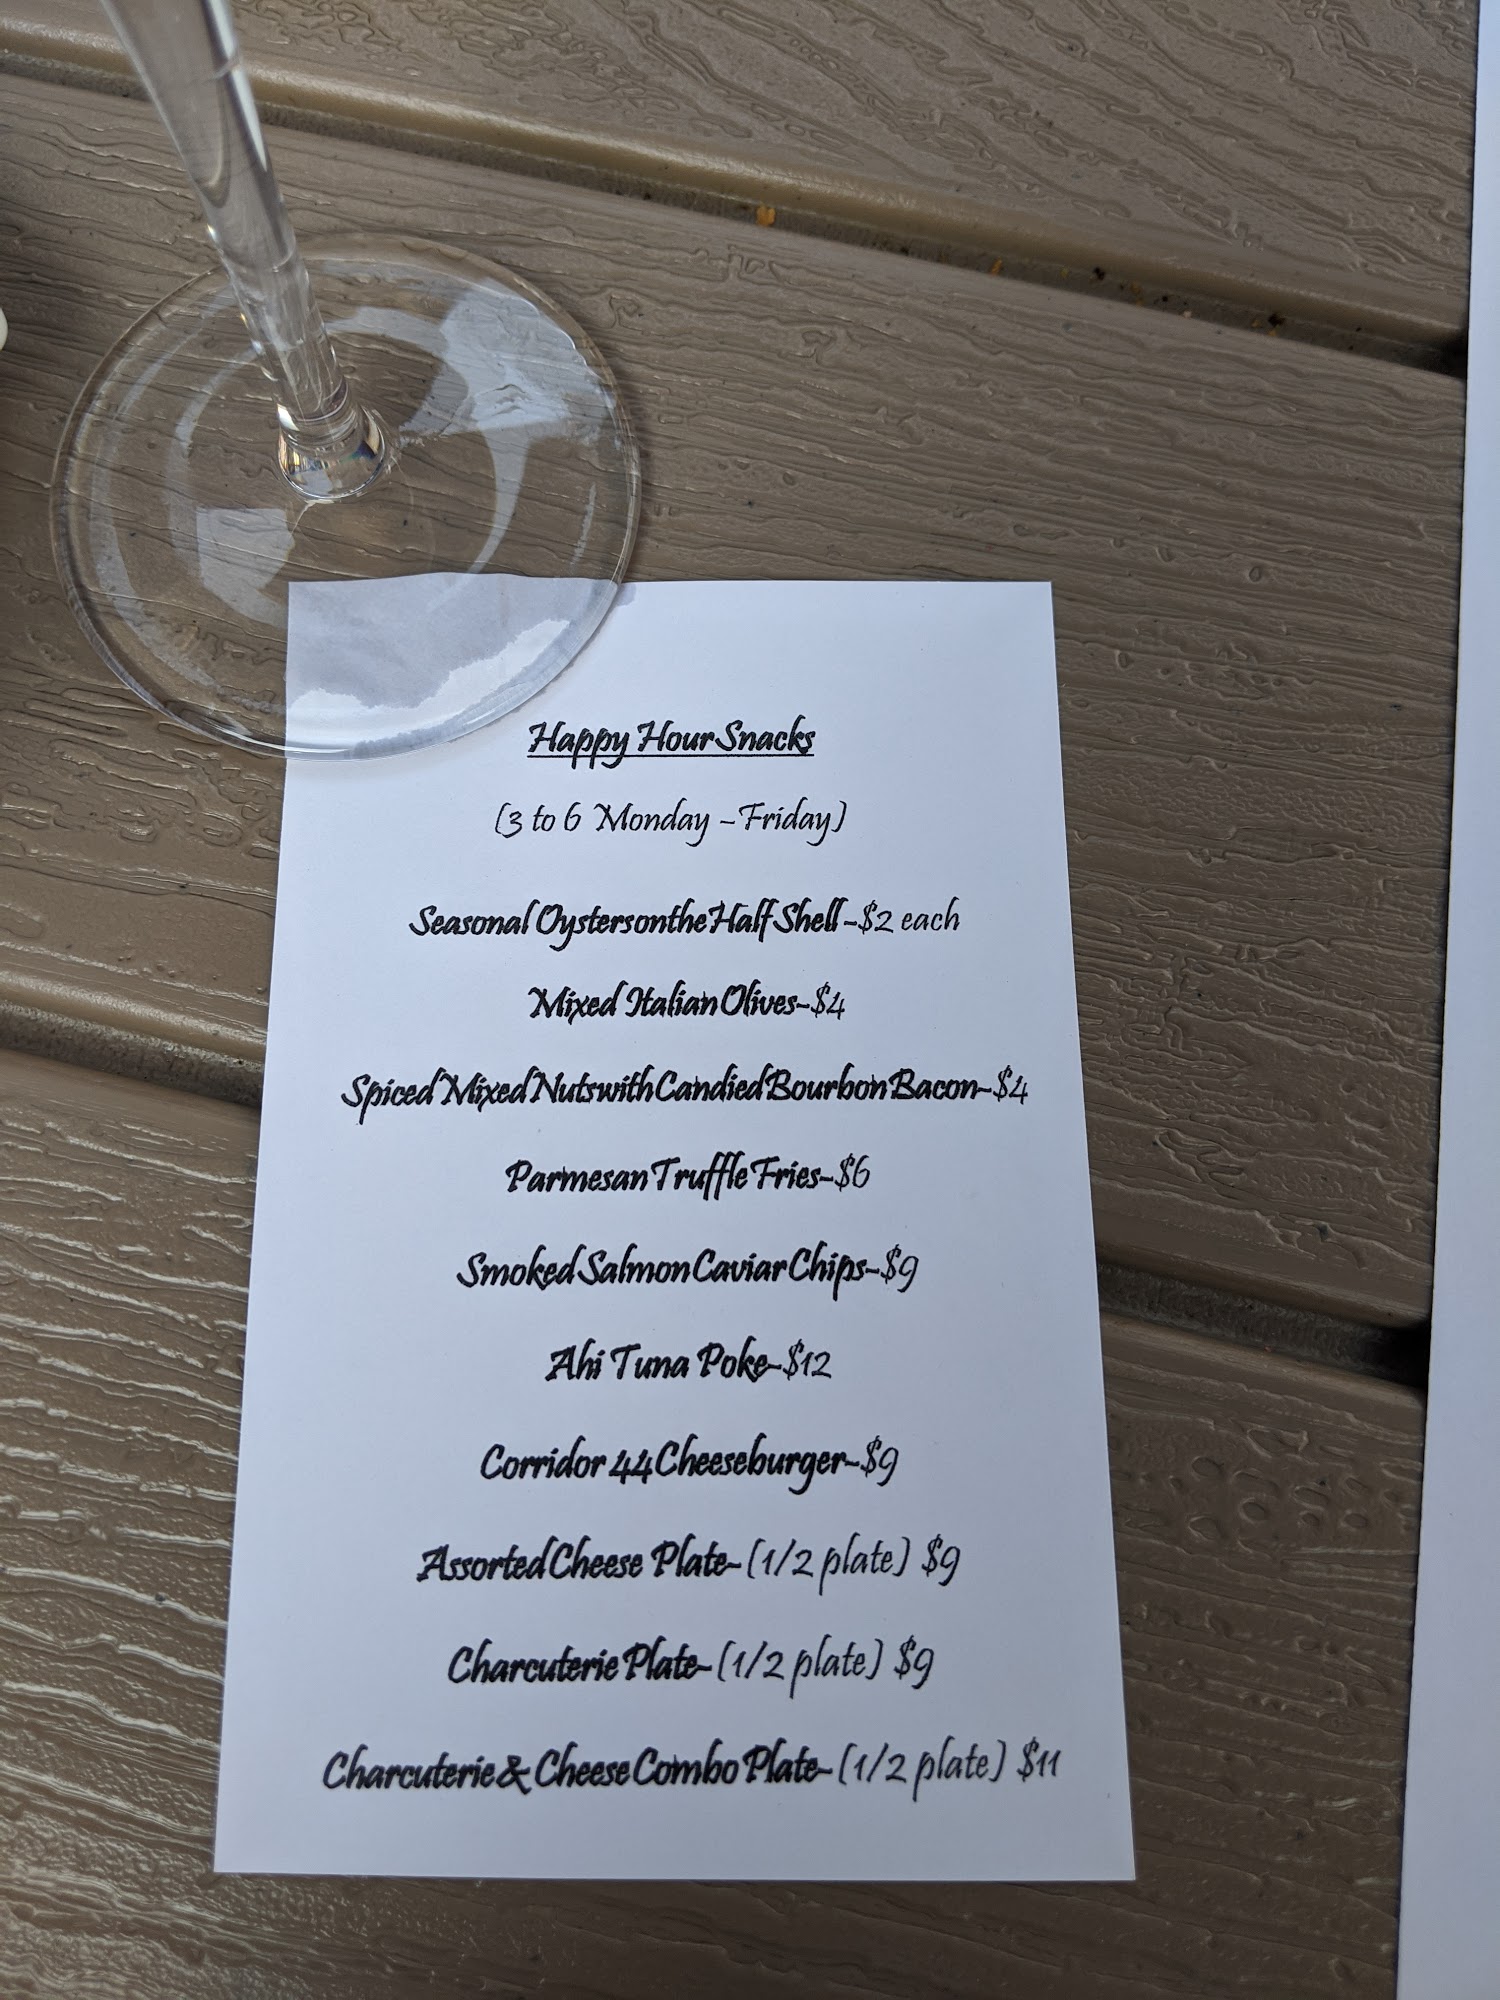 Happy Hour Snacks
(3 to 6 Monday – Friday)
Seasonal Oysters on the Half Shell – $2 each
Mixed Italian Olives – $4
Spiced Mixed Nuts with Candied Bourbon Bacon – $4
Parmesan Truffle Fries – $6
Smoked Salmon Caviar Chips – $9
Ahi Tuna Poke – $12
Corridor 44 Cheeseburger – $9
Assorted Cheese Plate – (1/2 plate) $9
Charcuterie Plate – (1/2 plate) $9
Charcuterie & Cheese Combo Plate – (1/2 plate) $11